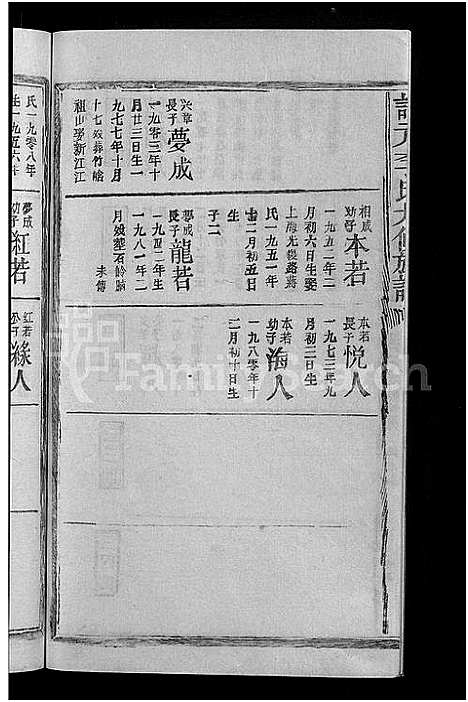 相成
幼子
本若
一九五二年二
月初六日生娶
上海
氏一九五一年
二月初五日
生
子二
本若
長子
悦人
一九七三年九
月初二日生
本若
幼子
海人
一九八〇年十
二月初十日生
興章
長子
夢成
一九〇三年十
月廿三日生一
九七七年十月
十七歿葬竹
祖山娶新江江
夢成
長子
龍若
一九四二年生
一九八一年二
月歿葬石
未傳
氏一九〇八年
生一九五六年
夢成
幼子
紅若
紅若
緣人
FamilySearch